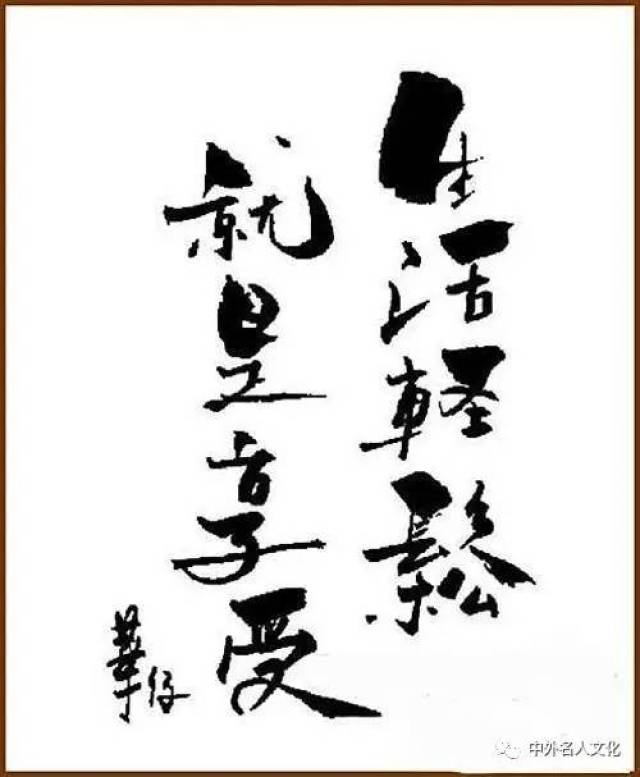 生活輕鬆
就是享受
華仔
中外名人文化